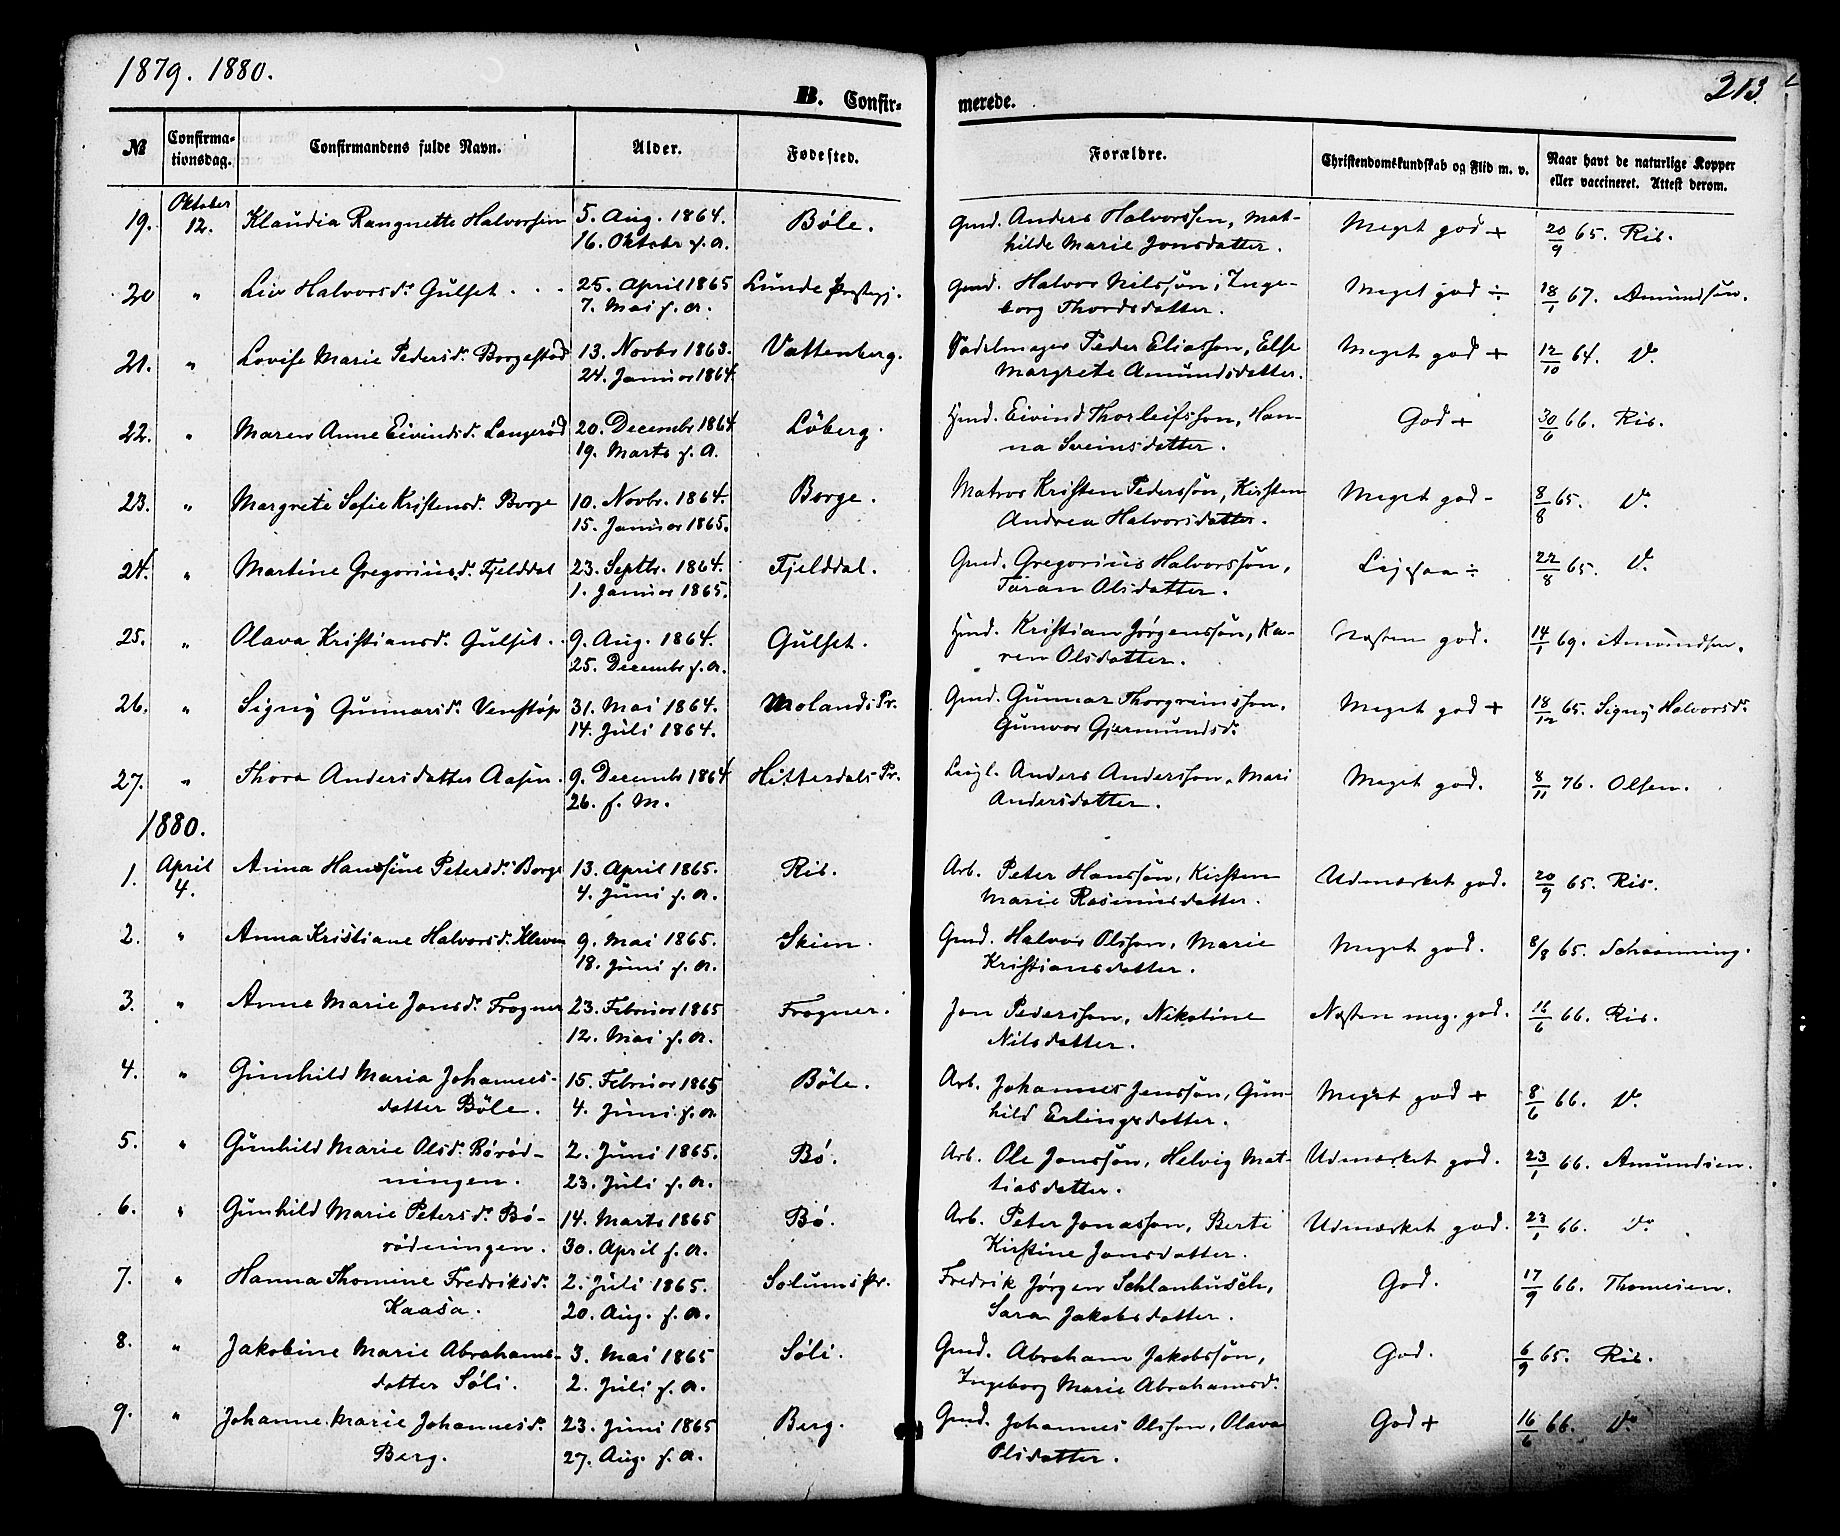 1879. 1880.
213.
B. Confir-
merede.
№
Confirma-
tionsdag.
Confirmandens fulde Navn.
Alder.
Fødested.
Forældre.
Christendomskundskab og Flid m. v.
Naar havt de naturlige Kopper
eller vaccineret. Attest derom.
19. Oktober 12. Klaudia Rangnette Halvorsen 5. Aug. 1864. Bøle. Gmd. Anders Halvorssen, Mat- Meget god + 20/9 65. Ris.
16. Oktobr s. A. hilde Marie Jonsdatter.
20 " Liv Halvorsd. Gulset . . . 25. April 1865 Lunde Prstgj. Gmd. Halvor Nilssøn, Inge- Meget god ÷ 18/1 67. Amundsøn.
7. Mai s. A. borg Thordsdatter.
21. " Lovise Marie Pedersd. Borgestad 13. Novbr 1863. Vattenberg. Sadelmager Peder Eliassøn, Else Meget god + 12/10 64. Do
24. Januar 1864. Margrete Amundsdatter.
22. " Maren Anne Eivindsd. Langerød 20. Decembr 1864 Løberg. Hmd. Eivind Thorleifssøn, Han- God + 30/6 66. Ris.
19. Marts s. A. na Sveinsdatter.
23. " Margrete Sofie Kristensd. Borge 10. Novbr. 1864. Borge. Matros Kristen Pederssøn, Kirsten Meget god - 8/8 65. Do
15. Januar 1865. Andrea Halvorsdatter.
24. " Martine Gregoriusd. Fjelddal 23. Septbr. 1864. Fjelddal. Gmd. Gregorius Halvorssøn, Ligesaa ÷ 22/8 65. Do
1. Januar 1865. Taran Olsdatter.
25. " Olava Kristiansd. Gulset . . 9. Aug. 1864. Gulset. Hmd. Kristian Jørgenssøn, Ka- Næsten god. 14/1 69. Amundsen.
25. Decembr s. A. ren Olsdatter.
26. " Signy Gunnarsd. Venstøp 31. Mai 1864. Molands Pr. Gmd. Gunnar Thorgrimssøn, Meget god + 18/12 65. Signy Halvorsdr
14. Juli 1864. Gunvor Gjermundsd.
27. " Thora Andersdatter Aasen . 9. Decembr 1864 Hitterdals Pr. Leigl. Anders Anderssøn, Mari Meget god. 8/11 76. Olsen.
26. s. M. Andersdatter.
1880.
1. April 4. Anna Hansine Petersd. Borge 13. April 1865. Ris. Arb. Peter Hanssøn, Kirsten Udmærket god. 20/9 65. Ris.
4. Juni s. A. Marie Rasmusdatter.
2. " Anna Kristiane Halvorsd. Kleven 9. Mai 1865. Skien. Gmd. Halvor Olssøn, Marie Meget god. 8/8 65. Schanning.
18. Juni s. A. Kristiansdatter.
3. " Anne Marie Jonsd. Frogner 23. Februar 1865 Frogner. Jon Pederssøn, Nikoline Næsten meg. god. 16/6 66. Ris.
12. Mai s. A. Nilsdatter.
4. " Gunhild Maria Johannes- 15. Februar 1865 Bøle. Arb. Johannes Jenssøn, Gun- Meget god + 8/6 66. Do
datter Bøle. 4. Juni s. A. hild Erlingsdatter.
5. " Gunhild Marie Olsd. Børød- 2. Juni 1865. Bø. Arb. Ole Jonssøn, Helvig Mat- Udmærket god. 23/1 66. Amundsen.
ningen. 23. Juli s. A. tiasdatter.
6. " Gunhild Marie Petersd. Bø- 14. Marts 1865 Bø. Arb. Peter Jonassøn, Berte Udmærket god. 23/1 66. Do
rødningen. 30. April s. A. Kirstine Jonsdatter.
7. " Hanna Thomine Fredriksd. 2. Juli 1865. Solums Pr. Fredrik Jørgen Schlanbusch, God. 17/9 66. Thomesen.
Kaasa. 20. Aug. s. A. Sara Jakobsdatter.
8. " Jakobine Marie Abrahams- 3. Mai 1865 Søli. Gmd. Abraham Jakobssøn, God. 6/9 65. Ris.
datter Søli. 2. Juli s. A. Ingeborg Marie Abrahamsd.
9. " Johanne Marie Johannesd. 23. Juni 1865 Berg. Gmd. Johannes Olssøn, Olava God + 16/6 66. Do
Berg. 27. Aug. s. A. Olsdatter.